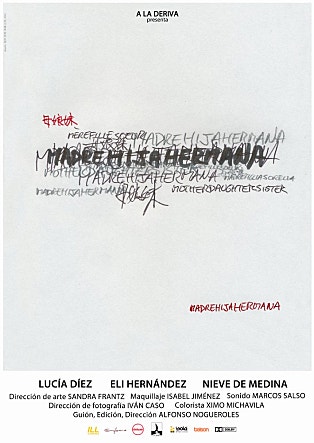 A LA DERIVA
presenta
MEREFILLESOEUR
MADREHIJAHERMANA
MADREHIJAHERMANA
MADREHIJAHERMANA
MADREFIGLIASORELLA
MADREHIJAHERMANA
MOTHERDAUGHTERSISTER
MADREHIJAHERMANA
LUCÍA DÍEZ ELI HERNÁNDEZ NIEVE DE MEDINA
Dirección de arte SANDRA FRANTZ Maquillaje ISABEL JIMÉNEZ Sonido MARCOS SALSO
Dirección de fotografía IVÁN CASO Colorista XIMO MICHAVILA
Guión, Edición, Dirección ALFONSO NOGUEROLES